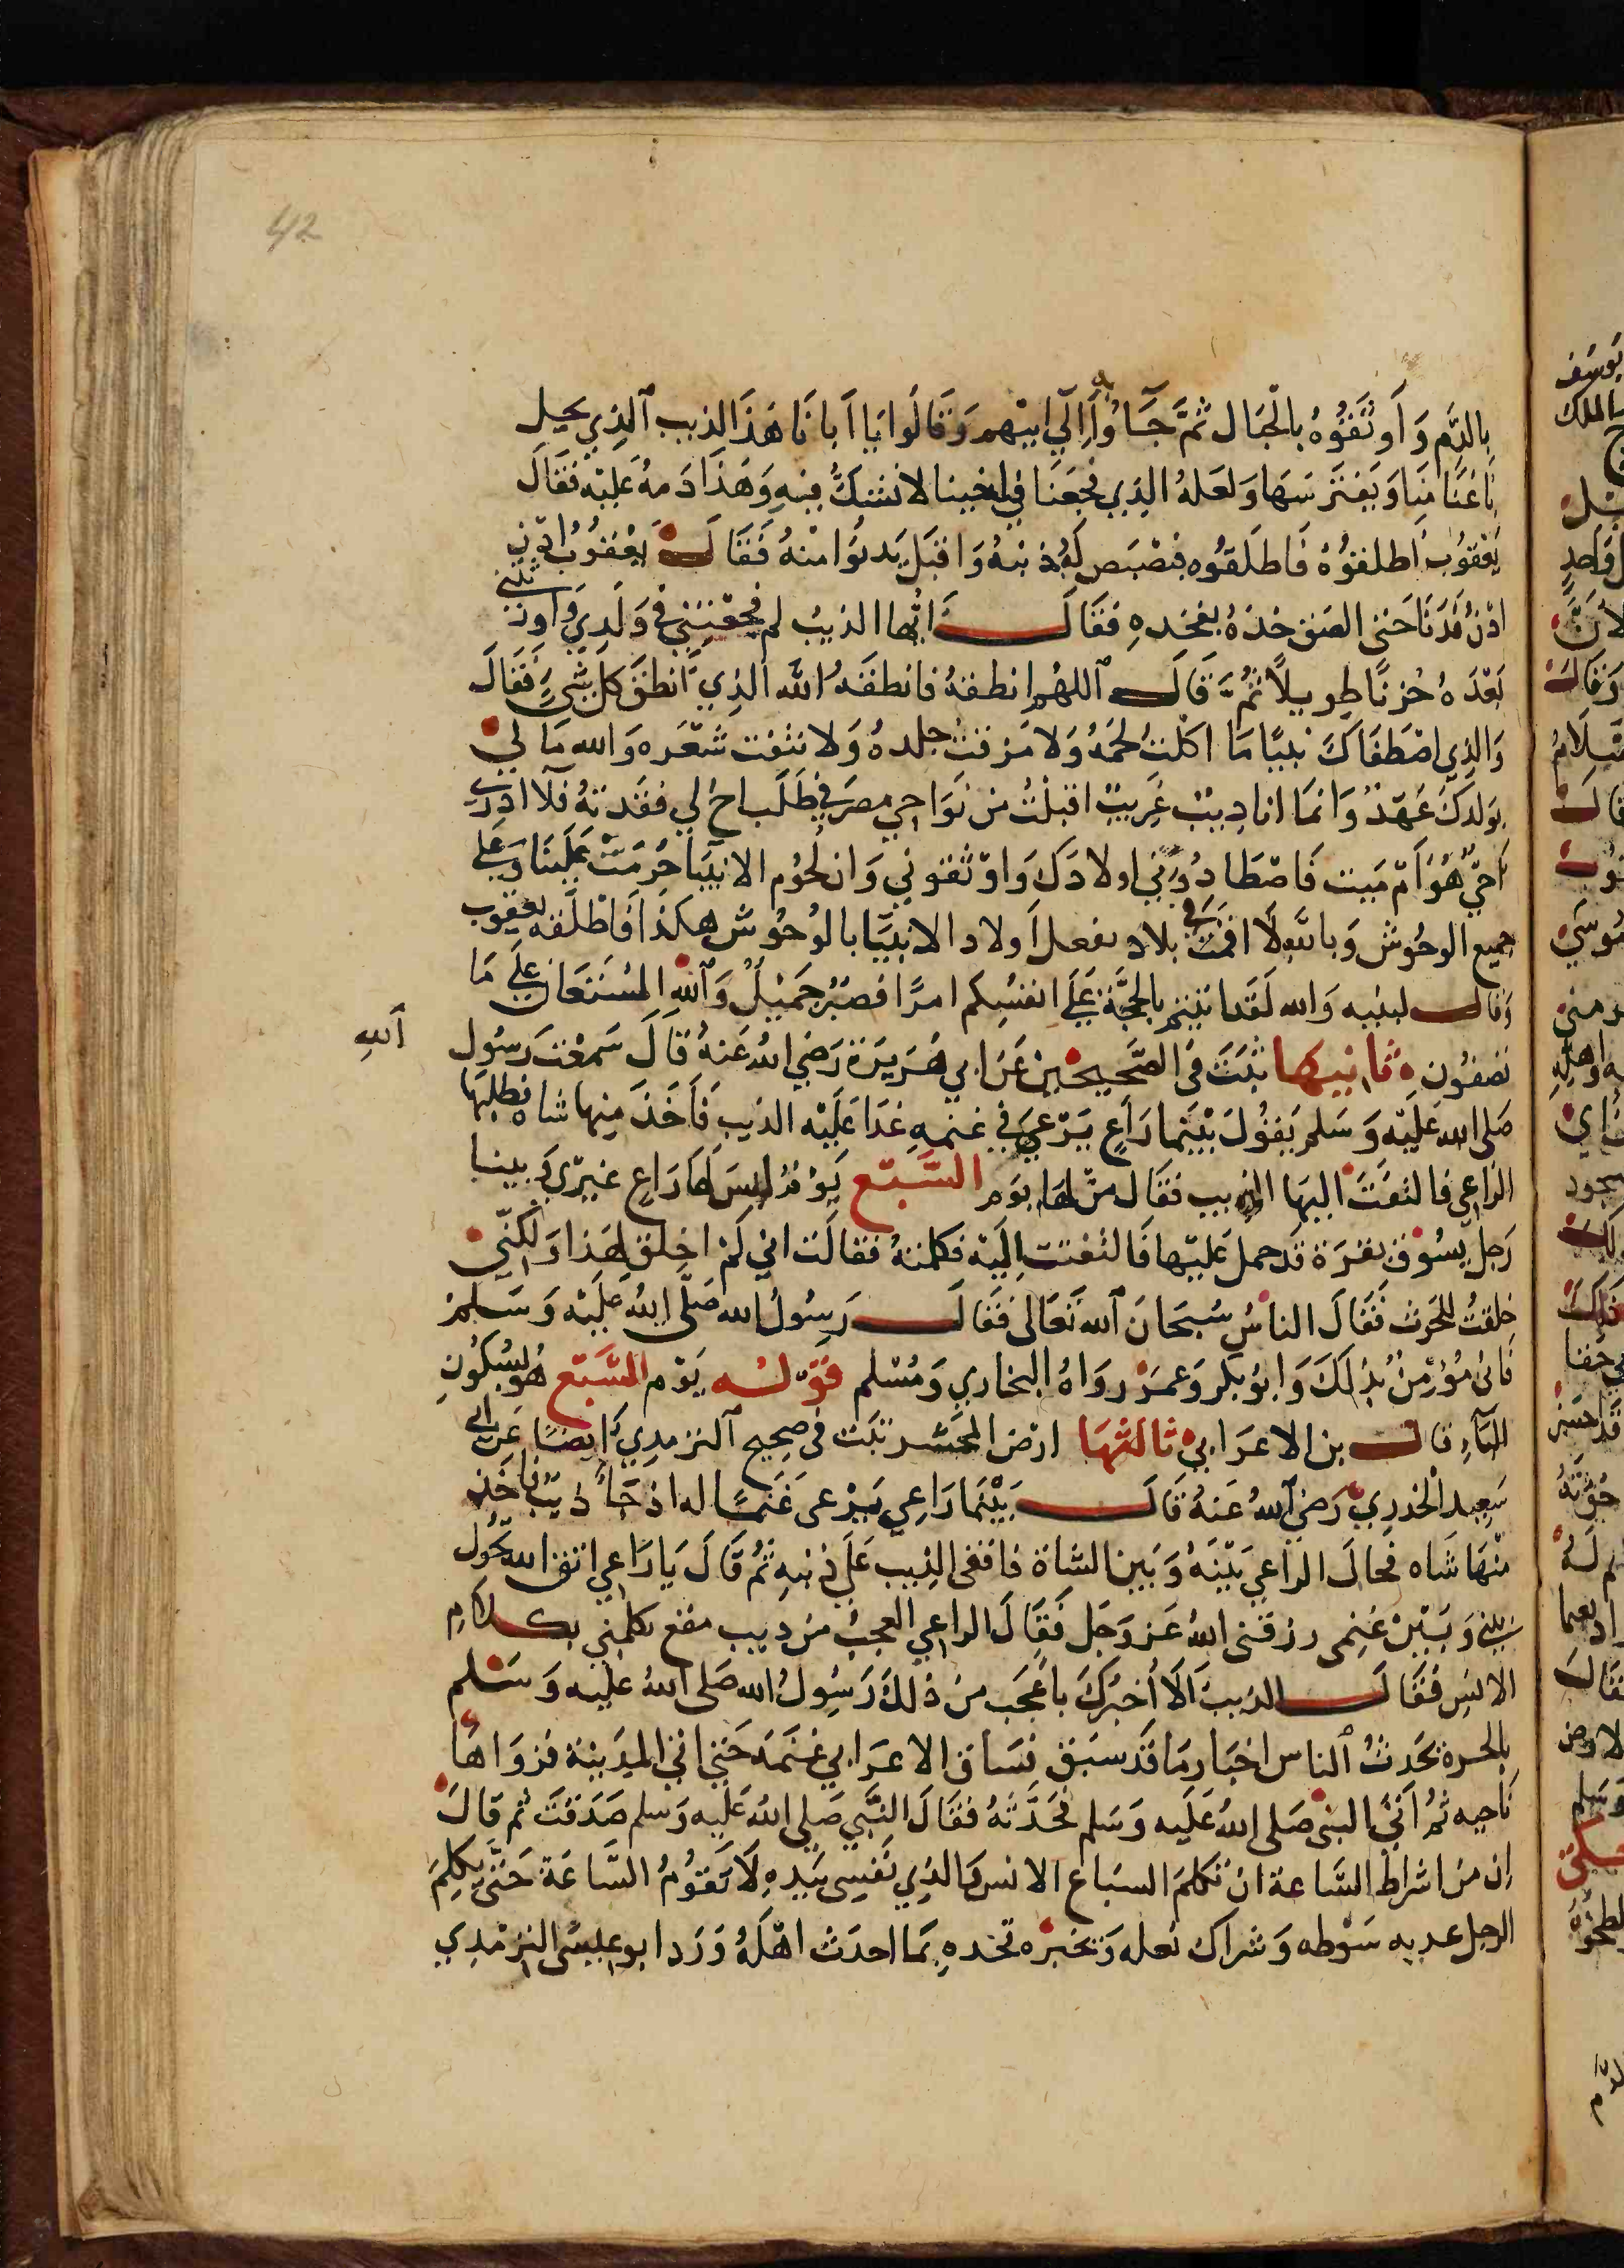 42
بالدَّم وَ أَوثَقُوُهُ بالْجِبَال ثُمَّ جَآاُوا بِهِ اِلَي ابيْهم وَقَالُوا يَا اَبانَا هَذَا الذيب ٱلذِي يحل
بَاغنَامِنَا وَيَفتَرسَهَا وَلعَلهُ الذِي فجَعنَا في اخينا لانَشكُّ فِيهِ وَهَذَا دَمهُ عَليْه فَقَالَ
يَعْقوُب اطلقوُهُ فَاطلَقوُه فبَصْبَص لَهُ بذنبهُ وَاقبَل يَدنوُا منهُ فَقَالَ لهُ يَعْقوُبُ ادْن
ادْن فَدَنَا حَتى الصَق خدهُ بفَخدهِ فَقَالَ اَيُّها الذيبُ لم فجعْتَنِي في وَلَدِيَ وَاورثتني
بَعْدَهُ حُزنًا طوِيلاً ثُمَّ قَالَ ٱللهُم انطقهُ فانطقَهُ اللَّه الذِي انطقَ كل شَيِءٍ فَقَالَ
وَالذِي اصْطفَاكَ نَبيًا مَا اكلتُ لحمَهُ وَلا مَزقتُ جلدهُ وَلا نتفْت شَعْره وَالله مَا لِي
بوَلدكَ عَهدٌ وَانمَا انا ديبٌ غَرِيبٌ اقبلتُ من نَوَاحِي مصرَ في طَلَب اخ لي فقَدتهُ فَلا ادْري
احَيٌّ هُوَ اَمْ مَيت فَاصْطادوُني اولادكَ وَاوْثقوني وَان لحُوم الانبيَا حُرِمَتْ عَليْنَا وَعَلى
جميع الوحُوش وَبالله لا اقمتُ في بلاد يفعل اَولاد الانبيَا بالوحُوش هكذَا فَاطْلقه يعقوب
وَقال لبنيه وَالله لَقَد اتيتم بالحجَّة عَلَى انفسُكم امرًا فصَبْرٌ جَميْلٌ وَٱلله المسْتعَان عَلى مَا
الله
تصفُون ه ثانيها ثبَتَ في الصَّحِيحَين عَن ابي هُرَيرَة رَضِي اللهُ عَنهُ قَالَ سَمعْت رَسُول
صَلى الله عَليْه وَسَلم يَقوُل بَيْنَمَا رَاعٍ يَرْعى في غنمهِ غدَا عَليْه الذيب فَأَخَذَ مِنها شاه فطلبَهَا
الراعِي فالتفَتَ اليهَا الذيب فَقَال منْ لهَا يوَم السَّبْع يَوْمَ ليسَ لهَا رَاعٍ غيْرِي وَبينا
رَجل يسُوق بقرَة قدحمل عَليْها فَالتفتت اِليْه فكلمتهُ فقالَت اني لم اخلق لهَذا وَلكنِّي
خلقتُ للحَرث فَقَالَ الناسُ سُبحَانَ ٱلله تَعَالى فَقَالَ رَسُولُ الله صَلَّى اللهُ عَليْه وَسَلم
فَاني مُؤْمِنٌ بذلكَ وَابوُ بَكر وَعمرَ روَاهُ البخاري وَمُسْلم قَوْلـُـه يَوْم السَّبْع هُوَ بسُكُون
البَآءِ قال بن الاعرَابي ثالثهَا ارْض المحشَر ثبَت في صحيح ٱلترمِدِي اَيضًا عَن ابي
سَعِيد الخدرِيّ رَضي ٱللهُ عَنهُ قَالَ بَيْنَمَا رَاعِي يَرْعى غَنمًا له اذ جَآءَ ذيْبٌ فاخذ
منْهَا شَاه فحَالَ الراعِي بَيْنَهُ وَبَين الشاة فَاقعَى الذيب عَلَى ذنبهِ ثُمَّ قَالَ يَا رَاعِي اتق الله تحُول
بَيني وَبَيْن غنِمى رزقنى اللهُ عَز وَجَل فَقَالَ الراعِي العجبُ من ديب مقع يكلمني بكَلَامِ
الانسِ فَقَالَ الذيبُ اَلَا اُخبرُكَ باعْجَب منْ ذلكَ رَسُولُ الله صَلى اللهُ عليه وَسَلم
بالحرة يحَدثُ ٱلناس اخبَار مَا قَدسَبَق فسَاق الاعرَابي غنَمهَ حَتى اتى المدَينة فزوَاهَا
نَاحِيه ثُمَّ اَتىُ النبيَ صَلى اللهُ عَلَيه وَسَلم فحَدَّثهُ فقَالَ النَّبي صَلي اللهُ عَلَيْه وَسلم صَدَقتَ ثم قَالَ
اِن منْ اشراط السَّاعة انْ تُكلمَ السبَاع الانس وَالذِي نَفسِي بيَدهِ لاَ تَقوُمُ السَّاعَة حَتىَّ يكلمَ
الرجل عدبه سَوْطه وَشراك نعله وَتخبرُه فخدهِ بمَا احدَث اهْلَهُ وَرَد ابوعيسَى الترمْدي